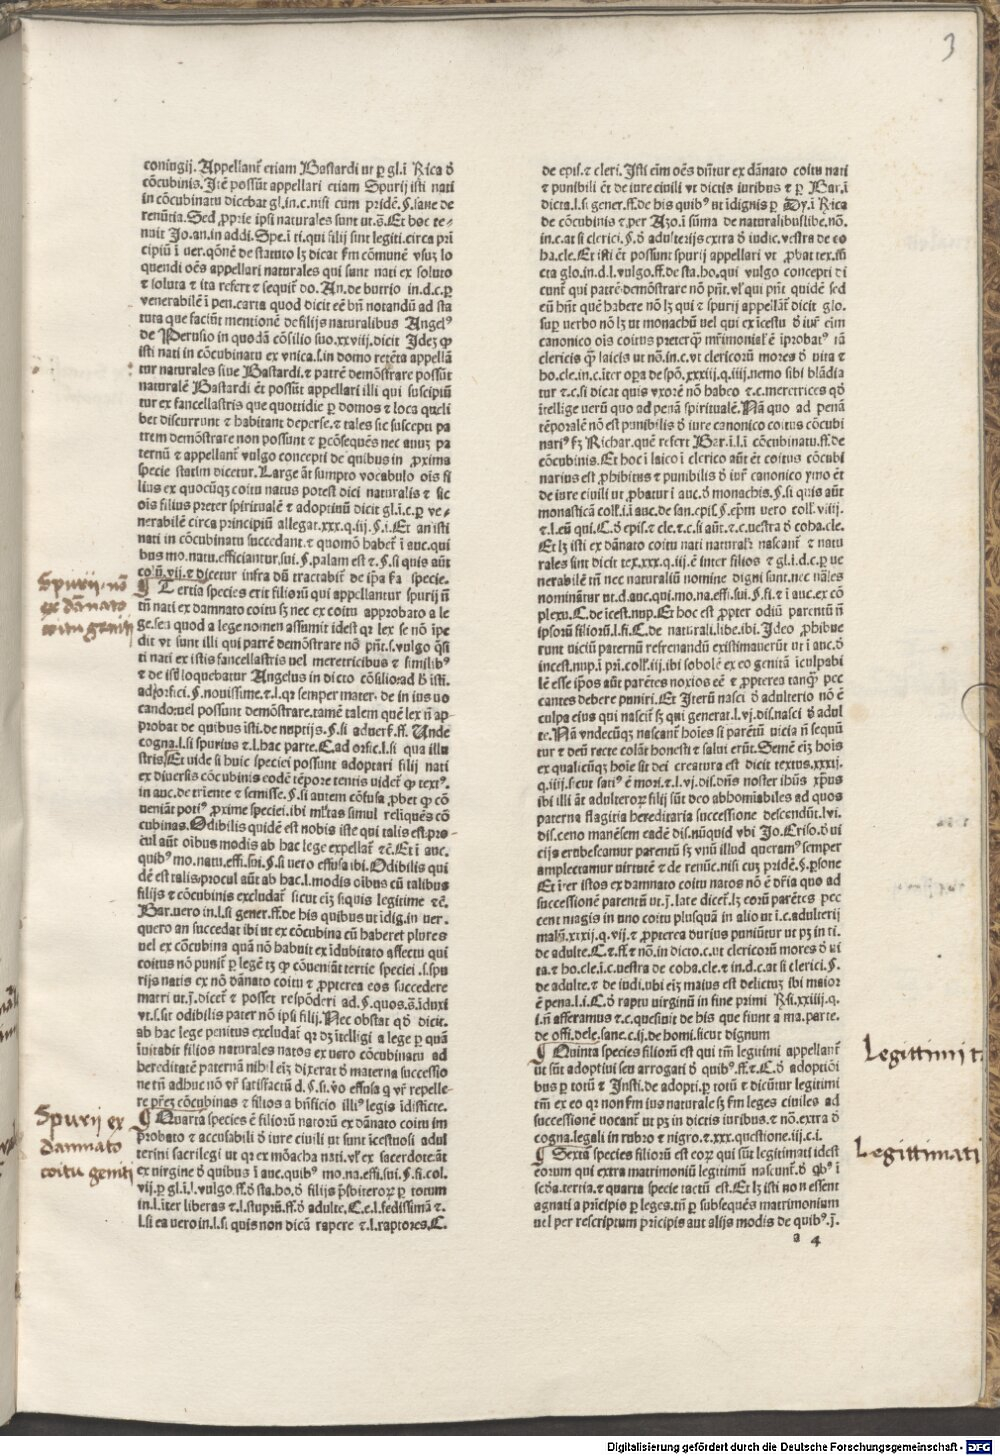 3
coniugij. Appellant̃ etiam Bastardi ut ꝑ gl.ĩ Rica ð
cõcubinis. Itẽ possũt appellari etiam Spurij isti nati
in cõcubinatu dicebat gl.in.c.nisi cum pridẽ.§.sane de
renũtia. Sed ꝓprie ipsi naturales sunt ut.ð. Et hoc te⸗
nuit Jo.an.in addi. Spe.ĩ ti.qui filij sunt legiti.circa pri
cipiũ ĩ uer.qõnẽ de statuto lꝫ dicat fm cõmunẽ vsuꝫ lo
quendi oẽs appellari naturales qui sunt nati ex soluto
⁊ soluta ⁊ ita refert ⁊ sequit̃ do. An. de butrio in.d.c.ꝑ
venerabilẽ ĩ pen.carta quod dicit eẽ bñ notandũ ad sta
tuta que faciũt mentionẽ de filijs naturalibus Angelꝰ
de Perusio in quodã cõsilio suo.xxviij.dicit Ideꝫ ꝙ
isti nati in cõcubinatu ex vnica.s.in domo retẽta appellã
tur naturales siue Bastardi.⁊ patrẽ demõstrare possũt
naturalẽ Bastardi ẽt possũt appellari illi qui suscipiũ
tur ex fancellastris que quottidie ꝑ domos ⁊ loca queli
bet discurrunt ⁊ habitant deperse.⁊ tales sic suscepti pa
trem demõstrare non possunt ⁊ ꝑ cõsequẽs nec auuꝫ pa
ternũ ⁊ appellant̃ vulgo concepti de quibus in ꝓxima
specie statim dicetur. Large aũt sumpto vocabulo ois fi
lius ex quocũqꝫ coitu natus potest dici naturalis ⁊ sic
ois filius preter spiritualẽ ⁊ adoptiuũ dicit gl.ĩ.c.ꝑ ve⸗
nerabilẽ circa principiũ allegat.xxx.q.iij.§.i. Et an isti
nati in cõcubinatu succedant.⁊ quomõ habet̃ ĩ auc.qui
bus mo.natu.efficiantur.sui.§.palam est ⁊.§.si quis aũt
co ũ.vij.⁊ dicetur infra dũ tractabit̃ de ip̃a fa specie.
Spurij nõ
ex dãnato
coitu geniti
¶ Tertia species erit filiorũ qui appellantur spurij ñ
tñ nati ex damnato coitu sꝫ nec ex coitu approbato a le
ge.seu quod a lege nomen assumit idest qꝛ lex se nõ ĩpe
dit vt sunt illi qui patrẽ demõstrare nõ pñt.s.vulgo q̃si
ti nati ex istis fancellastris uel meretricibus ⁊ similibꝰ
⁊ de isð loquebatur Angelus in dicto cõsilio:ad ð isti.
ad)orfici.§.nouissime.⁊.l.qꝛ semper mater.de in ius uo
cando:uel possunt demõstrare.tamẽ talem quẽ lex ñ ap⸗
probat de quibus isti.de nuptijs.§.si aduerꝭ.ff. Unde
cogna.l.si spurius ⁊ l.hac parte. C.ad orfic.l.si qua illu
stris. Et uide si huic speciei possunt adoptari filij nati
ex diuersis cõcubinis eodẽ tẽpore tentis videt̃ ꝙ textꝰ.
in auc.de triente ⁊ semisse.§.si autem cõfusa ꝓbet ꝙ cõ
ueniãt potiꝰ ꝓxime speciei.ibi mĺtas simul reliquẽs cõ
cubinas. Odibilis quidẽ est nobis iste qui talis est.pro⸗
cul aũt oĩbus modis ab hac lege expellat̃ ⁊c̃. Et ĩ auc.
quibꝰ mo.natu.effi.sui.§.si uero effusa ibi. Odibilis qui
dẽ est talis.procul aũt ab hac.l.modis oĩbus cũ talibus
filijs ⁊ cõcubinis excludat̃ sicut eiꝫ siquis legitime ⁊c̃.
Bar.uero in.l.si gener.ff.de his quibus ut ĩdig.in uer.
quero an succedat ibi ut ex cõcubina cũ haberet plures
uel ex cõcubina quã nõ habuit ex ĩdubitato affectu qui
coitus nõ punit̃ ꝑ legẽ tꝫ ꝙ cõueniãt tertie speciei .s.spu
rijs natis ex nõ dãnato coitu ⁊ ꝓpterea eos succedere
matri ut.j.dicet̃ ⁊ posset respõderi ad.§.quos.ð.ĩduxi
vt.s.sit odibilis pater nõ ipsi filij. Nec obstat qð dicit.
ab hac lege penitus excludat̃ qꝛ dꝫ ĩtelligi a lege ꝑ quã
ĩuitabit filios naturales natos ex uero cõcubinatu ad
hereditatẽ paternã nihil eiꝫ dixerat ð materna successio
ne tñ adhuc nõ vr̃ satisfactũ d.§.si.vo effusa q vr̃ repelle⸗
re pr̃eꝫ cõcubinas ⁊ filios a bñficio illiꝰ legis ĩdisticte.
Spurij ex
damnato
coitu geniti
¶ Quarta species ẽ filiorũ natorũ ex dãnato coitu im
probato ⁊ accusabili ð iure ciuili ut sunt ĩcestuosi adul
terini sacrilegi ut qꝛ ex mõacha nati.vĺ ex sacerdote:aẽt
ex virgine ð quibus ĩ auc.quibꝰ mo.na.effi.sui.§.fi.col.
vij.ꝑ gl.ĩ.l.vulgo.ff.ð sta.ho.ð filijs p̃sbiterorꝫ ꝑ totum
in.l.ĩter liberas ⁊.l.stuprũ.ff.ð adulte. C.e.l.fedissimã ⁊.
l.si ea uero in.l.si quis non dicã rapere ⁊.l.raptores. C.
de epiꝭ.⁊ cleri. Isti eĩm oẽs dñtur ex dãnato coitu nati
⁊ punibili ẽt de iure ciuili vt dictis iuribus ⁊ ꝑ Bar.ĩ
dicta.l.si gener.ff.de his quibꝰ ut ĩdignis ꝑ Dy.ĩ Rica
de cõcubinis ⁊ per Azo.ĩ sũma de naturalibusllbe.nõ.
in.c.at si clerici.§.ð adulterijs extra ð iudic.vestra de co
ha.cle. Et isti ẽt possunt spurij appellari vt ꝓbat tex.iñ
cta glo.in.d.l.vulgo.ff.de sta.ho.qui vulgo concepti di
cunt̃ qui patrẽ demõstrare nõ pñt.vĺ qui pñt quidẽ sed
eũ hñt quẽ habere nõ lꝫ qui ⁊ spurij appellãt̃ dicit glo.
suꝑ uerbo nõ lꝫ ut monachũ uel qui ex ĩcestu ð iur̃ eim
canonico ois coitus preterꝙ mr̃imonialẽ ĩprobatꝰ tã
clericis ꝙ̃ laicis ut nõ.in.c.vt clericorũ mores ð vita ⁊
ho.cle.in.c.ĩter oꝑa de spõ.xxxiij.q.iiij.nemo sibi blãdia
tur ⁊.c.si dicat quis vxorẽ nõ habeo ⁊.c.meretrices qð
ĩtellige uerũ quo ad penã spiritualẽ. Nã quo ad penã
tẽporalẽ nõ est punibilis ð iure canonico coitus cõcubi
nariꝰ fꝫ Richar.quẽ refert Bar.ĩ.l.ĩ cõcubinatu.ff.de
cõcubinis. Et hoc ĩ laico ĩ clerico aũt ẽt coitus cõcubi
narius est ꝓhibitus ⁊ punibilis ð iur̃ canonico ymo ẽt
de iure ciuili ut ꝓbatur ĩ auc.ð monachis.§.si quis aũt
monasticã coll̃.ĩ.ĩ auc.de san.epiꝭ.§.ep̃m uero coll̃.viiij.
⁊.l.eũ qui. C.ð epiꝭ.⁊ cle.⁊.c.si aũt.⁊.c.uestra ð coha.cle.
Et lꝫ isti ex dãnato coitu nati naturalr̃ nascant̃ ⁊ natu
rales sint dicit tex.xxx.q.iij.ẽ inter filios ⁊ gl.i.d.c.ꝑ ue
nerabilẽ tñ nec naturaliũ nomine digni sunt.nec nãles
nominãtur ut.d.auc.qui.mo.na.effi.sui.§.fi.⁊ ĩ auc.ex cõ
plexu. C.de ĩcest.nup. Et hoc est ꝓpter odiũ parentũ ñ
ipsorũ filiorũ.l.fi. C.de naturali.libe.ibi. Ideo ꝓhibue
runt uiciũ paternũ refrenandũ existimauerũt ut ĩ auc.ð
incest.nup.ĩ pri.coll̃.iij.ibi sobolẽ ex eo genitã ĩculpabi
lẽ esse ip̃os aũt parẽtes noxios eẽ ⁊ ꝓpterea tanqꝫ pec
cantes debere puniri. Et Iterũ nasci ð adulterio nõ ẽ
culpa eius qui nascit̃ sꝫ qui generat.l.vj.dis.nasci ð adul
te. Nã vndecũqꝫ nascant̃ hoĩes si parẽtũ uicia ñ sequũ
tur ⁊ deũ recte colãt honesti ⁊ salui erũt. Semẽ eiꝫ hoĩs
ex qualicũqꝫ hoĩe sit dei creatura est dicit textus.xxxij.
q.iiij.sicut satiꝰ ẽ mori.⁊ l.vj.dil.dñs noster ihũs xp̃us
ibi illi ãt adulterorꝫ filij sũt deo abhomiabiles ad quos
paterna flagitia hereditaria successione descendũt.lvi.
dis.ceno manẽsem cadẽ dis.nũquid vbi Jo. Criso.ð ui
cijs erubescamur parentũ sꝫ vnũ illud queramꝰ semper
amplectamur virtutẽ ⁊ de renũc.nisi cuꝫ pridẽ.§.ꝑsone
Et ĩter istos ex damnato coitu natos nõ ẽ dr̃ia quo ad
successionẽ parentũ ut.j.late dicet̃.lꝫ eorũ parẽtes pec
cent magis in uno coitu plusquã in alio ut ĩ.c.adulterij
malũ.xxxij.q.vij.⁊ ꝓpterea durius puniũtur ut pꝫ in ti.
de adulte. C.⁊.ff.⁊ nõ.in dicto.c.ut clericorũ mores ð ui
ta.⁊ ho.cle.ĩ.c.uestra de coha.cle.⁊ in.d.c.at si clerici.§.
de adulte.⁊ de iudi.ubi eiꝫ maius est delictuꝫ ibi maior
ẽ pena.l.i. C.ð raptu virginũ in fine primi Rsi.xxiiij.q.
i.ñ afferamus ⁊.c.quesiuit de his que fiunt a ma.parte.
de offi.dele.sane.c.ij.de homi.sicut dignum
Legittimi t.
¶ Quinta species filiorũ est qui tm̃ legitimi appellant̃
ut sũt adoptiui seu arrogati ð quibꝰ.ff.⁊. C.ð adoptiõi
bus ꝑ totũ ⁊ Insti.de adopti.ꝑ totũ ⁊ dicũtur legitimi
tm̃ ex eo qꝛ non fm ius naturale sꝫ fm leges ciuiles ad
successionẽ uocant̃ ut pꝫ in dictis iuribus.⁊ nõ.extra ð
cogna.legali in rubro ⁊ nigro.⁊.xxx.questione.iij.c.i.
Legittimati
¶ Sexta species filiorũ est eorꝫ qui sũt legitimati idest
eorum qui extra matrimoniũ legitimũ nascunt̃.ð qbꝰ ĩ
scða.tertia.⁊ quarta specie tactũ est. Et lꝫ isti non essent
agnati a p̃ricipio ꝑ leges.tñ ꝑ subsequẽs matrimonium
uel per rescriptum p̃ricipis aut alijs modis de quibꝰ.j.
a 4
Digitalisierung gefördert durch die Deutsche Forschungsgemeinschaft - DFG